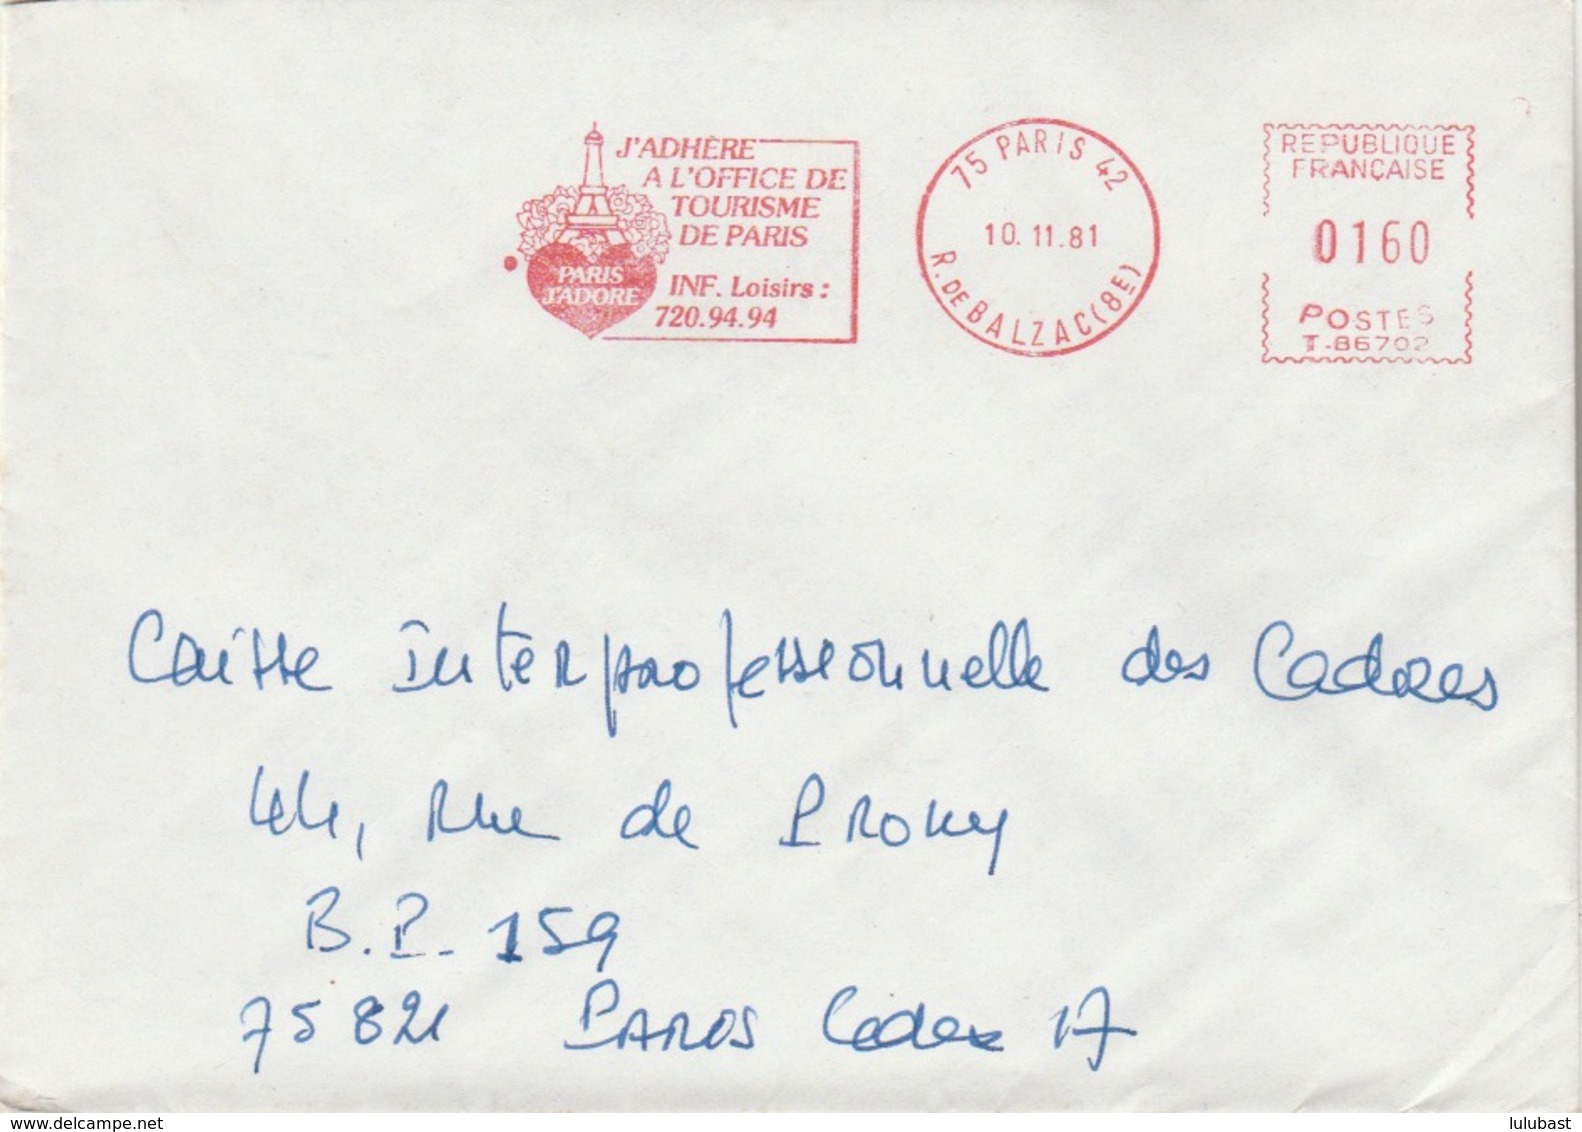 J'ADHÈRE
A L'OFFICE DE
TOURISME
DE PARIS
PARIS
J'ADORE
INF. Loisirs :
720.94.94
75 PARIS 42
10.11.81
R. DE BALZAC (8E)
REPUBLIQUE
FRANÇAISE
0160
POSTES
T.86702
Caisse Interprofessionnelle des Cadres
44, Rue de Prony
B.P. 159
75821 PARIS Cedex 17
www.delcampe.net
lulubast